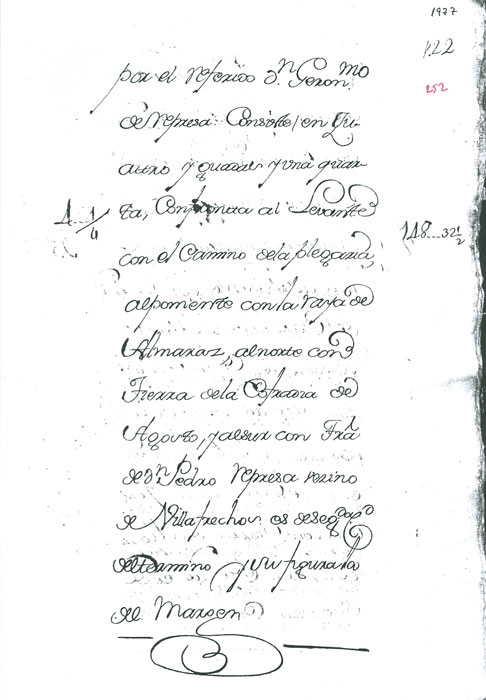 1977
122
252
por el referido Dn. Geronmo
de represa: Consiste/en Qu-
atro y quartas y una quar-
1 1/4 ta, Confronta al Levante 148...32 1/2
con el Camino dela plegaria,
alponiente con la raya de
Almaraz, alnorte con
Tierra dela Cofradia de
Agosto, yalsur con Tra
de Dn. Pedro represa vezino
de Villafrechos, es desegda
deltermino y su figura la
del Margen